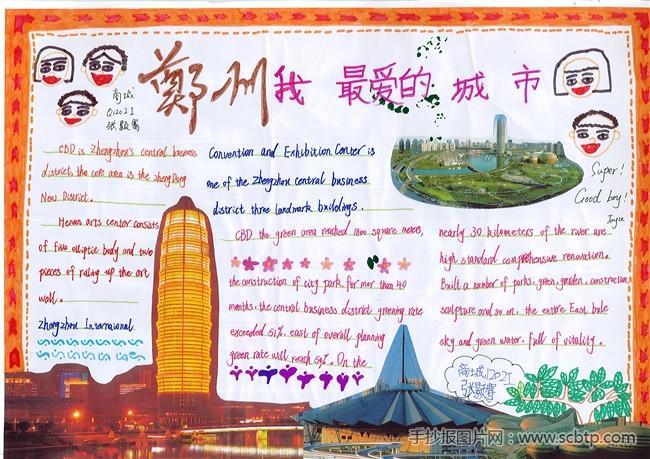 郑州我最爱的城市
商城
Q12021
CBD is Zhengzhou's central business
district, the core area is the Zheng Dong
New District.
Henan arts center consists
of five elliptic body and two
pieces of raling up the art
wall.
Zhengzhou Internaional
Convention and Exhibition Conter is
one of the Zhengzhou central business
district three landmark buildings.
CBD the green area reached 1800 square meters,
the construction of city park for more than 40
months, the central business district greening rate
exceeded 51%, east of overall planning
green rate will reach 59%. On the
nearly 30 kilometers of the river are
high standard comprehensive renovation.
Built a number of parks, green, garden, construction,
sculpture and so on, the entire East bule
sky and green water, full of vitality.
Super!
Good boy!
商城
手抄报图片网:www.scbtp.com